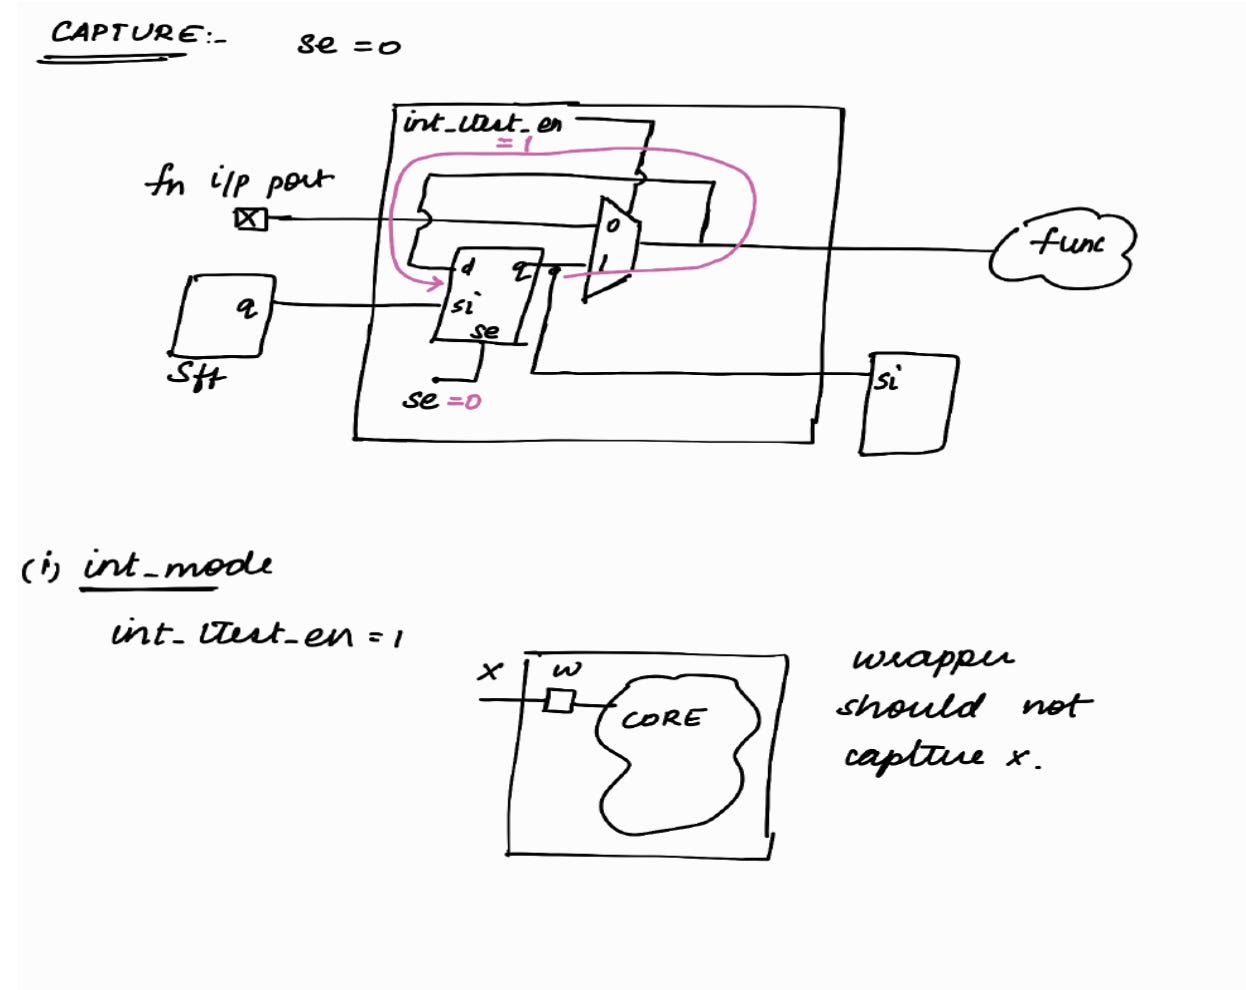 CAPTURE:- se = 0
int_ltest_en
= 1
fn i/p port
x
0
func
d q 1
q si
se
sff
se = 0
si
(i) int_mode
int_ltest_en = 1
x w
CORE
wrapper
should not
capture x.